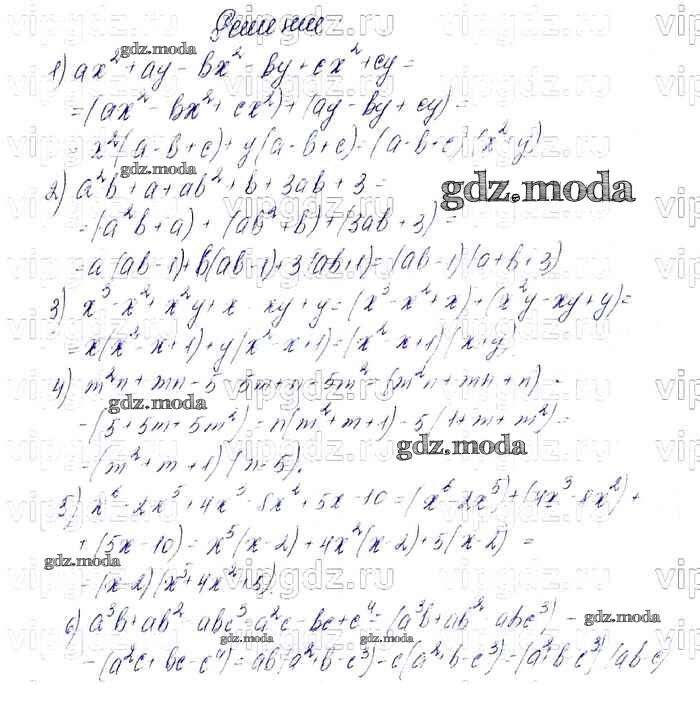 Решение:
1) ax² + ay - bx² - by + cx² + cy =
= (ax² - bx² + cx²) + (ay - by + cy) =
= x²(a - b + c) + y(a - b + c) = (a - b + c)(x² + y)
2) a²b + a + ab² + b + 3ab + 3 =
= (a²b + a) + (ab² + b) + (3ab + 3) =
= a(ab - 1) + b(ab - 1) + 3(ab + 1) = (ab - 1)(a + b + 3)
3) x³ - x² + x²y + x - xy + y = (x³ - x² + x) + (x²y - xy + y) =
= x(x² - x + 1) + y(x² - x + 1) = (x² - x + 1)(x + y)
4) m²n + mn - 5 - 5m + n - 5m² = (m²n + mn + n) -
- (5 + 5m + 5m²) = n(m² + m + 1) - 5(1 + m + m²) =
= (m² + m + 1)(n - 5).
5) x⁶ - 2x⁵ + 4x³ - 8x² + 5x - 10 = (x⁶ - 2x⁵) + (4x³ - 8x²) +
+ (5x - 10) = x⁵(x - 2) + 4x²(x - 2) + 5(x - 2) =
= (x - 2)(x⁵ + 4x² + 5).
6) a³b + ab² - abc³ - a²c - bc + c⁴ = (a³b + ab² - abc³) -
- (a²c + bc - c⁴) = ab(a² + b - c³) - c(a² + b - c³) = (a² + b - c³)(ab - c)
gdz.moda
vipgdz.ru